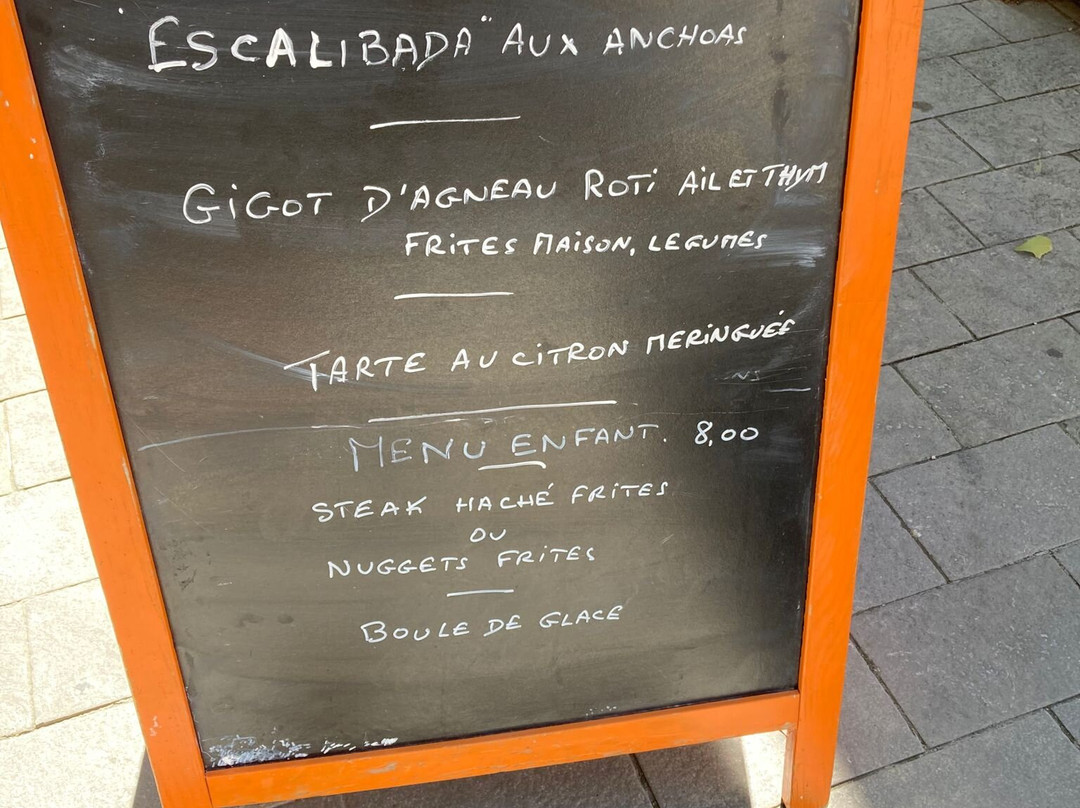 "ESCALIBADA" AUX ANCHOAS
GIGOT D'AGNEAU ROTI AIL ET THYM
FRITES MAISON, LEGUMES
TARTE AU CITRON MERINGUÉE
MENU ENFANT. 8,00
STEAK HACHÉ FRITES
OU
NUGGETS FRITES
BOULE DE GLACE